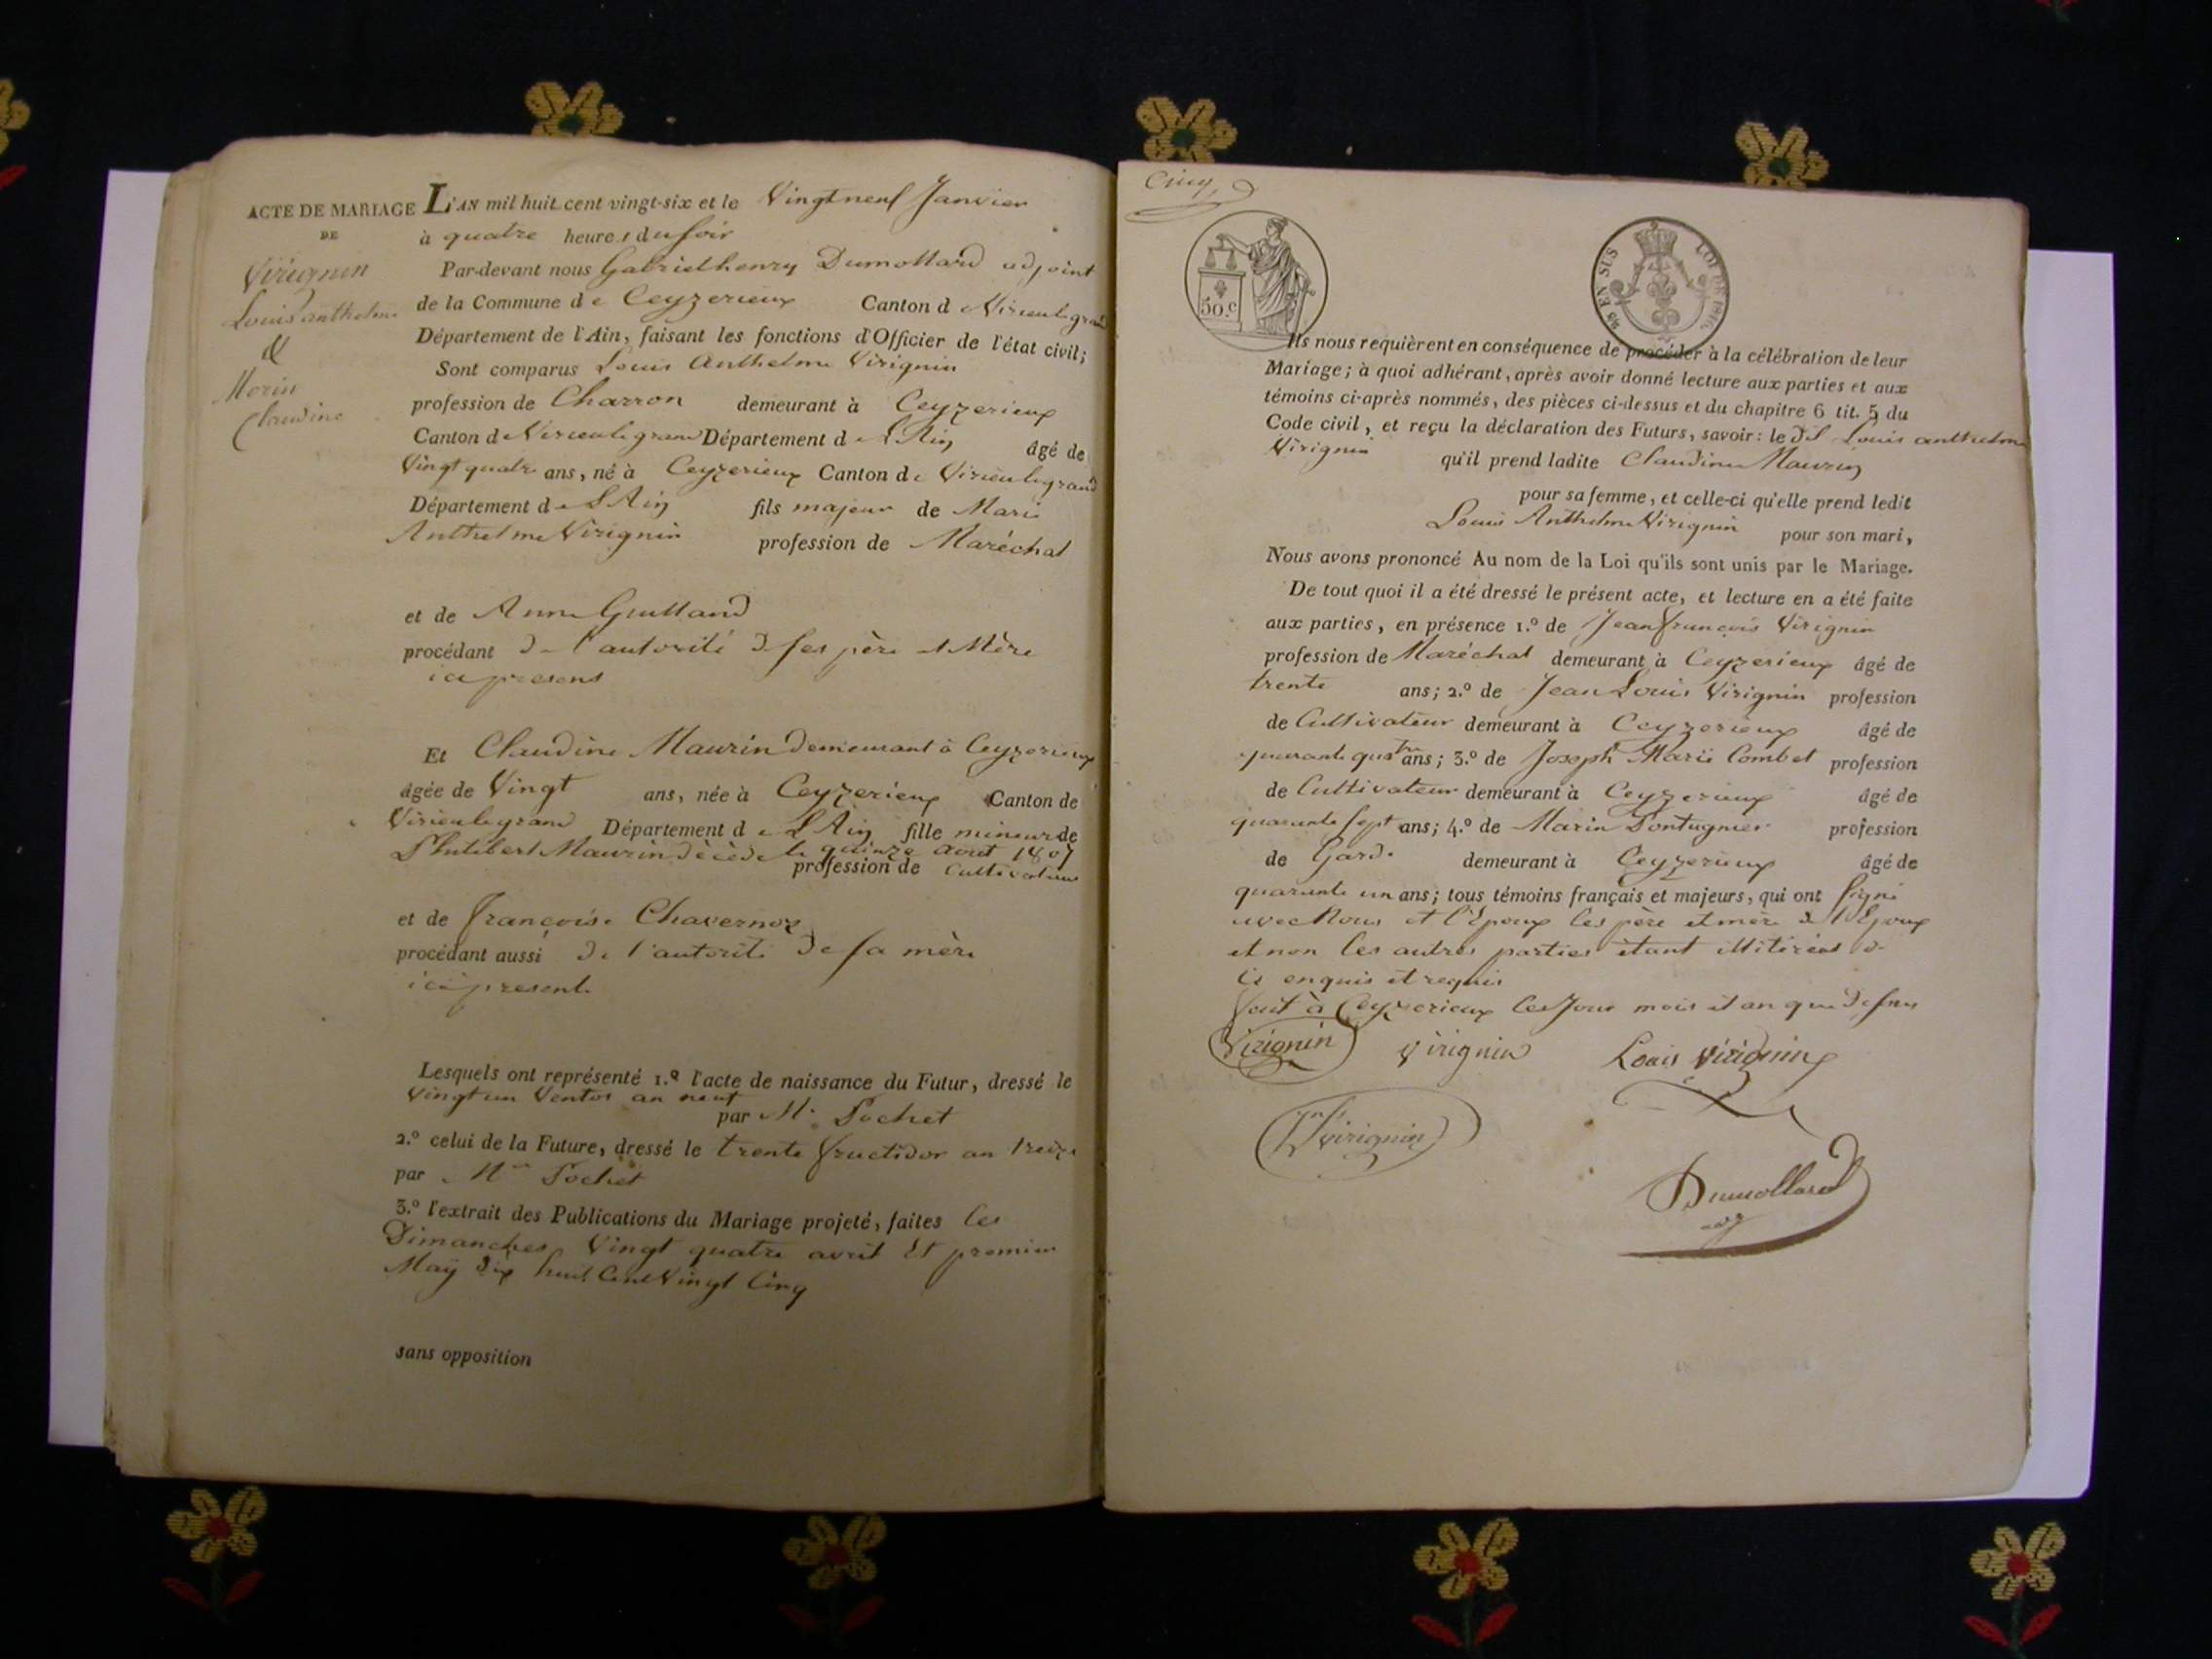 ACTE DE MARIAGE
DE
Virignin
Louis anthelme
&
Morin
Claudine
L'AN mil huit cent vingt-six et le Vingt neuf Janvier
à quatre heures du soir
Par-devant nous Gabriel henry Dumollard adjoint
de la Commune de Ceyzerieux Canton de Virieu le grand
Département de l'Ain, faisant les fonctions d'Officier de l'état civil;
Sont comparus Louis Anthelme Virignin
profession de Charron demeurant à Ceyzerieux
Canton de Virieu le grand Département de L'Ain âgé de
Vingt quatre ans, né à Ceyzerieux Canton de Virieu le grand
Département de L'Ain fils majeur de Marie
Anthelme Virignin profession de Maréchal
et de Anne Guilland
procédant de l'autorité de ses père et Mère
ici presens
Et Claudine Maurin demeurant à Ceyzerieux
âgée de Vingt ans, née à Ceyzerieux Canton de
Virieu le grand Département de L'Ain fille mineur de
Philibert Maurin décédé le quinze Aout 1807
profession de Cultivateur
et de françoise Chavernoz
procédant aussi de l'autorité de sa mère
ici presente
Lesquels ont représenté 1.º l'acte de naissance du Futur, dressé le
Vingt un Ventos an neuf
par Mr Pochet
2.º celui de la Future, dressé le trente fructidor an treize
par Mr Pochet
3.º l'extrait des Publications du Mariage projeté, faites les
Dimanches Vingt quatre avril Et premier
May dix huit Cent Vingt Cinq
sans opposition
Cinq
50.c
EN SUS
LOI DE 1816.
Ils nous requièrent en conséquence de procéder à la célébration de leur
Mariage; à quoi adhérant, après avoir donné lecture aux parties et aux
témoins ci-après nommés, des pièces ci-dessus et du chapitre 6 tit. 5 du
Code civil, et reçu la déclaration des Futurs, savoir: le dit Louis anthelme
Virignin qu'il prend ladite Claudine Maurin
pour sa femme, et celle-ci qu'elle prend ledit
Louis Anthelme Virignin pour son mari,
Nous avons prononcé Au nom de la Loi qu'ils sont unis par le Mariage.
De tout quoi il a été dressé le présent acte, et lecture en a été faite
aux parties, en présence 1.º de Jean françois Virignin
profession de Maréchal demeurant à Ceyzerieux âgé de
trente ans; 2.º de Jean Louis Virignin profession
de Cultivateur demeurant à Ceyzerieux âgé de
quarante quatre ans; 3.º de Joseph Marie Combet profession
de Cultivateur demeurant à Ceyzerieux âgé de
quarante sept ans; 4.º de Marin profession
de Garde demeurant à Ceyzerieux âgé de
quarante un ans; tous témoins français et majeurs, qui ont signé
avec Nous et l'Epoux les père et mère de l'Epoux
et non les autres parties étant illitérées de
ce enquis et requis
fait à Ceyzerieux les Jour mois et an que dessus
Virignin Virignin Louis Virignin
Virignin
Dumollard
adj